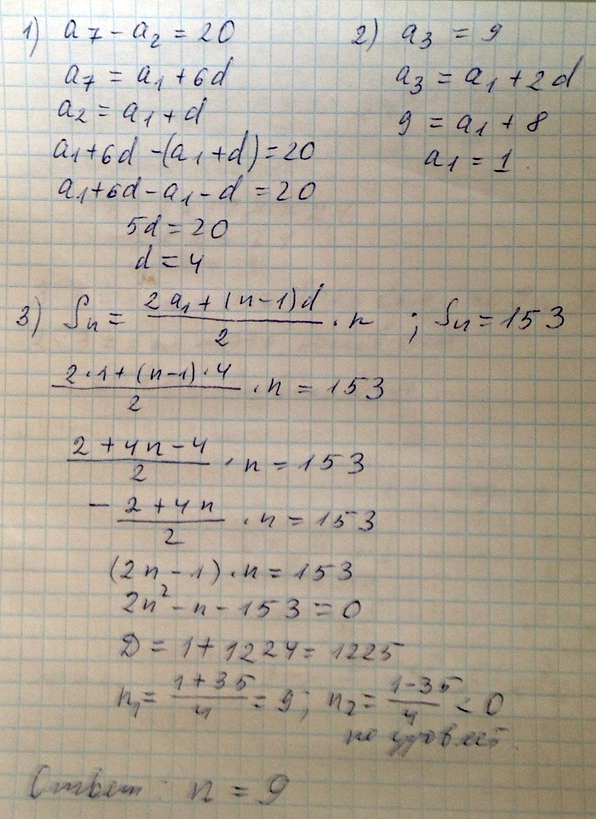 1) a₇ - a₂ = 20
a₇ = a₁ + 6d
a₂ = a₁ + d
a₁ + 6d - (a₁ + d) = 20
a₁ + 6d - a₁ - d = 20
5d = 20
d = 4
2) a₃ = 9
a₃ = a₁ + 2d
9 = a₁ + 8
a₁ = 1
3) Sₙ = (2a₁ + (n-1)d)/2 · n ; Sₙ = 153
(2·1 + (n-1)·4)/2 · n = 153
(2 + 4n - 4)/2 · n = 153
(-2 + 4n)/2 · n = 153
(2n - 1) · n = 153
2n² - n - 153 = 0
D = 1 + 1224 = 1225
n₁ = (1 + 35)/4 = 9; n₂ = (1 - 35)/4 < 0
не удовлет.
Ответ: n = 9